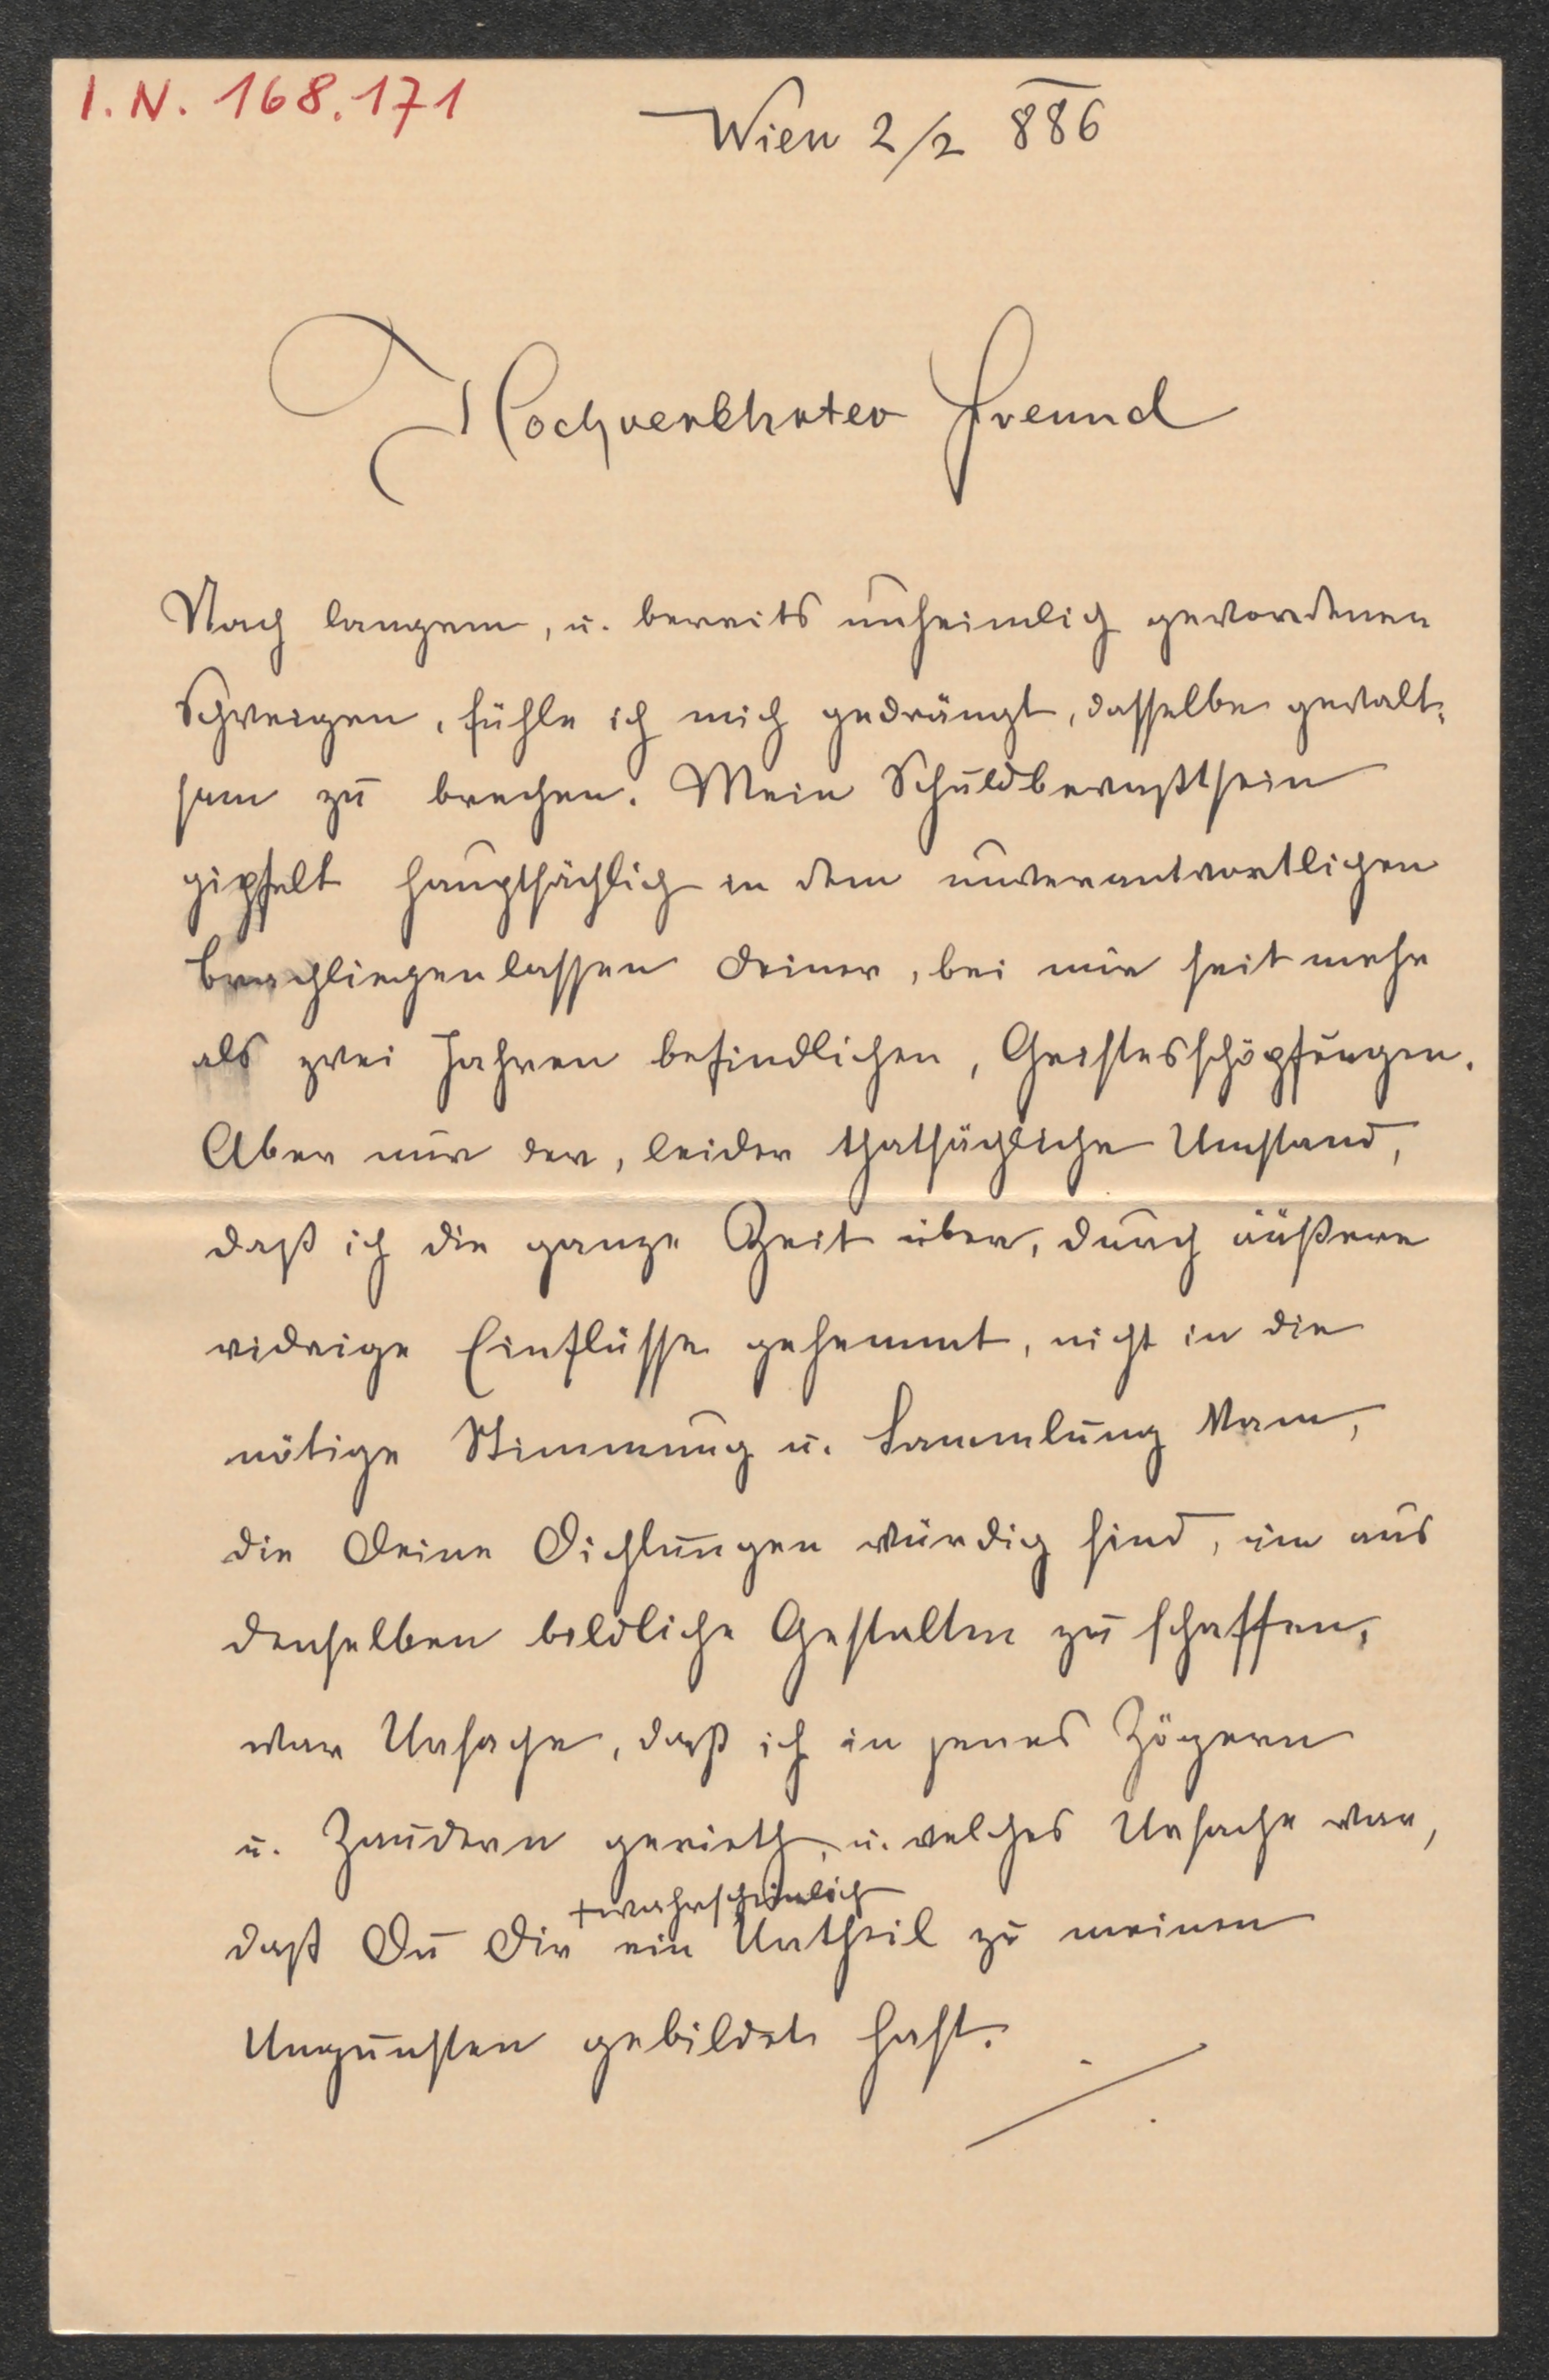 I. N. 168.171
Wien 2/2 886
Hochverehrter Freund
Nach langem, u. bereits unheimlich gewordenen
Schweigen, fühle ich mich gedrängt, dasselbe gewalt-
sam zu brechen. Mein Schuldbewußtsein
gipfelt hauptsächlich in dem unverantwortlichen
brachliegenlassen Deiner, bei mir seit mehr
als zwei Jahren befindlichen, Geistesschöpfungen.
Aber nur der, leider thatsächliche Umstand,
daß ich die ganze Zeit über, durch äußere
widrige Einflüsse gehemmt, nicht in die
nötige Stimmung u. Sammlung kam,
die Deine Dichtungen würdig sind, um aus
denselben bildliche Gestalten zu schaffen,
war Ursache, daß ich in jenes Zögern
u. Zaudern gerieth, u. welches Ursache war,
+ wahrscheinlich
daß Du Dir ein Urtheil zu meinen
Ungunsten gebildet hast.